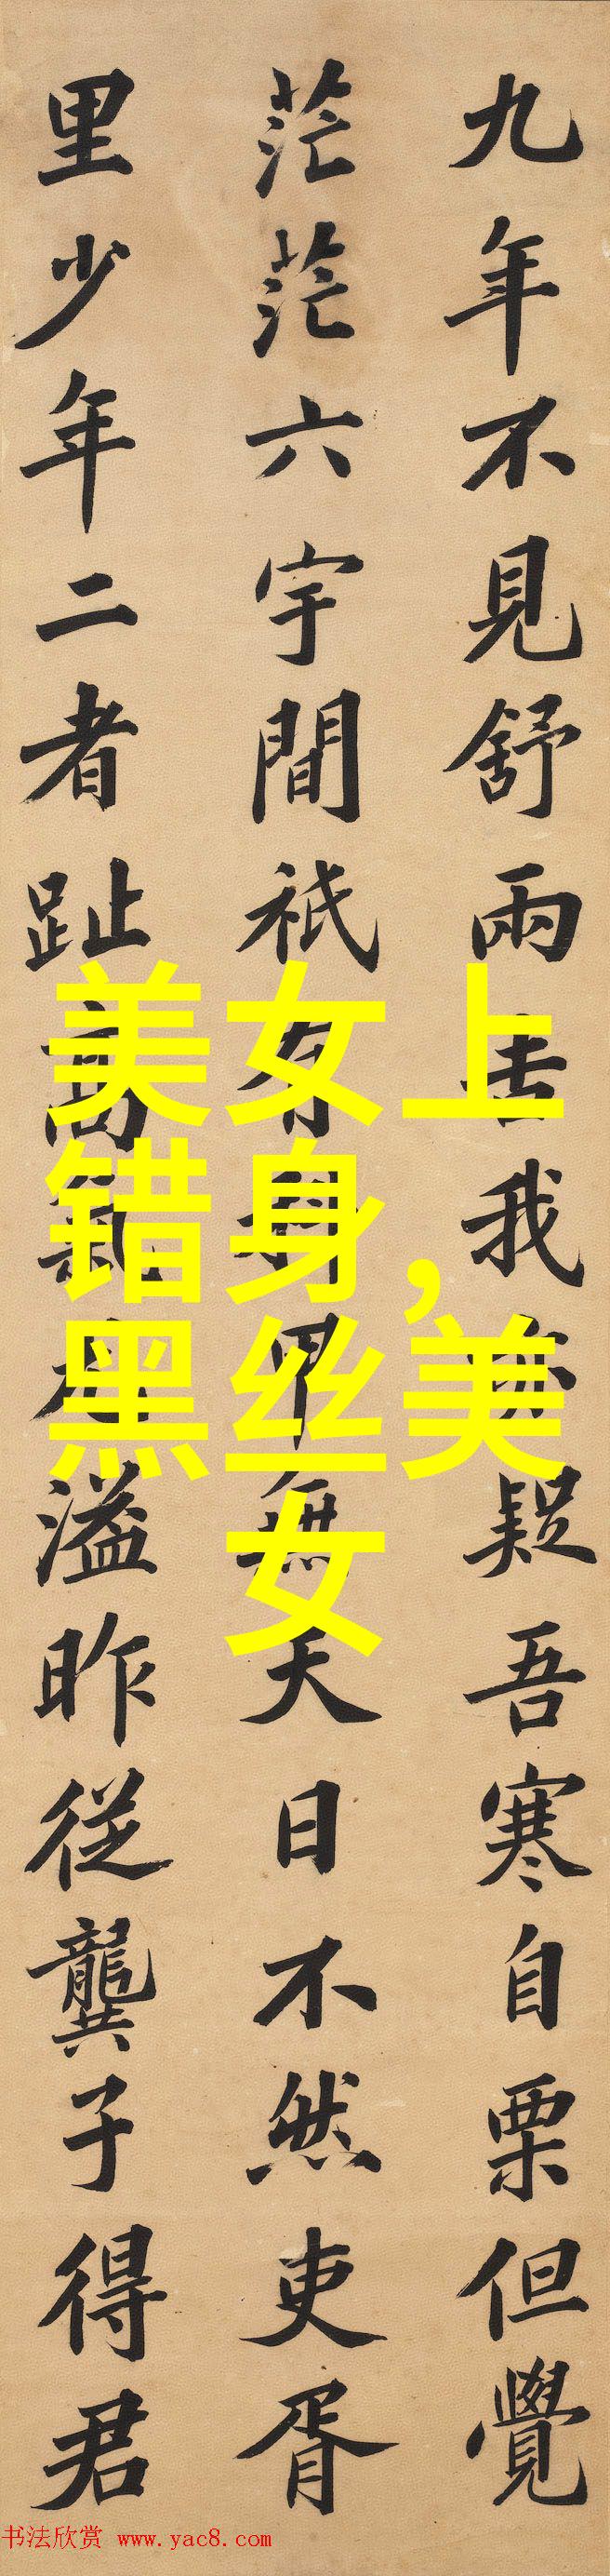 九年不見舒雨我疑吾寒自栗但覺
茫茫六宇間祇有科甲無天日不然吏胥
里少年二者趾高氣溢昨從龔子得君
美女上
错身,
黑丝美
女
书法欣赏 www.yac8.com